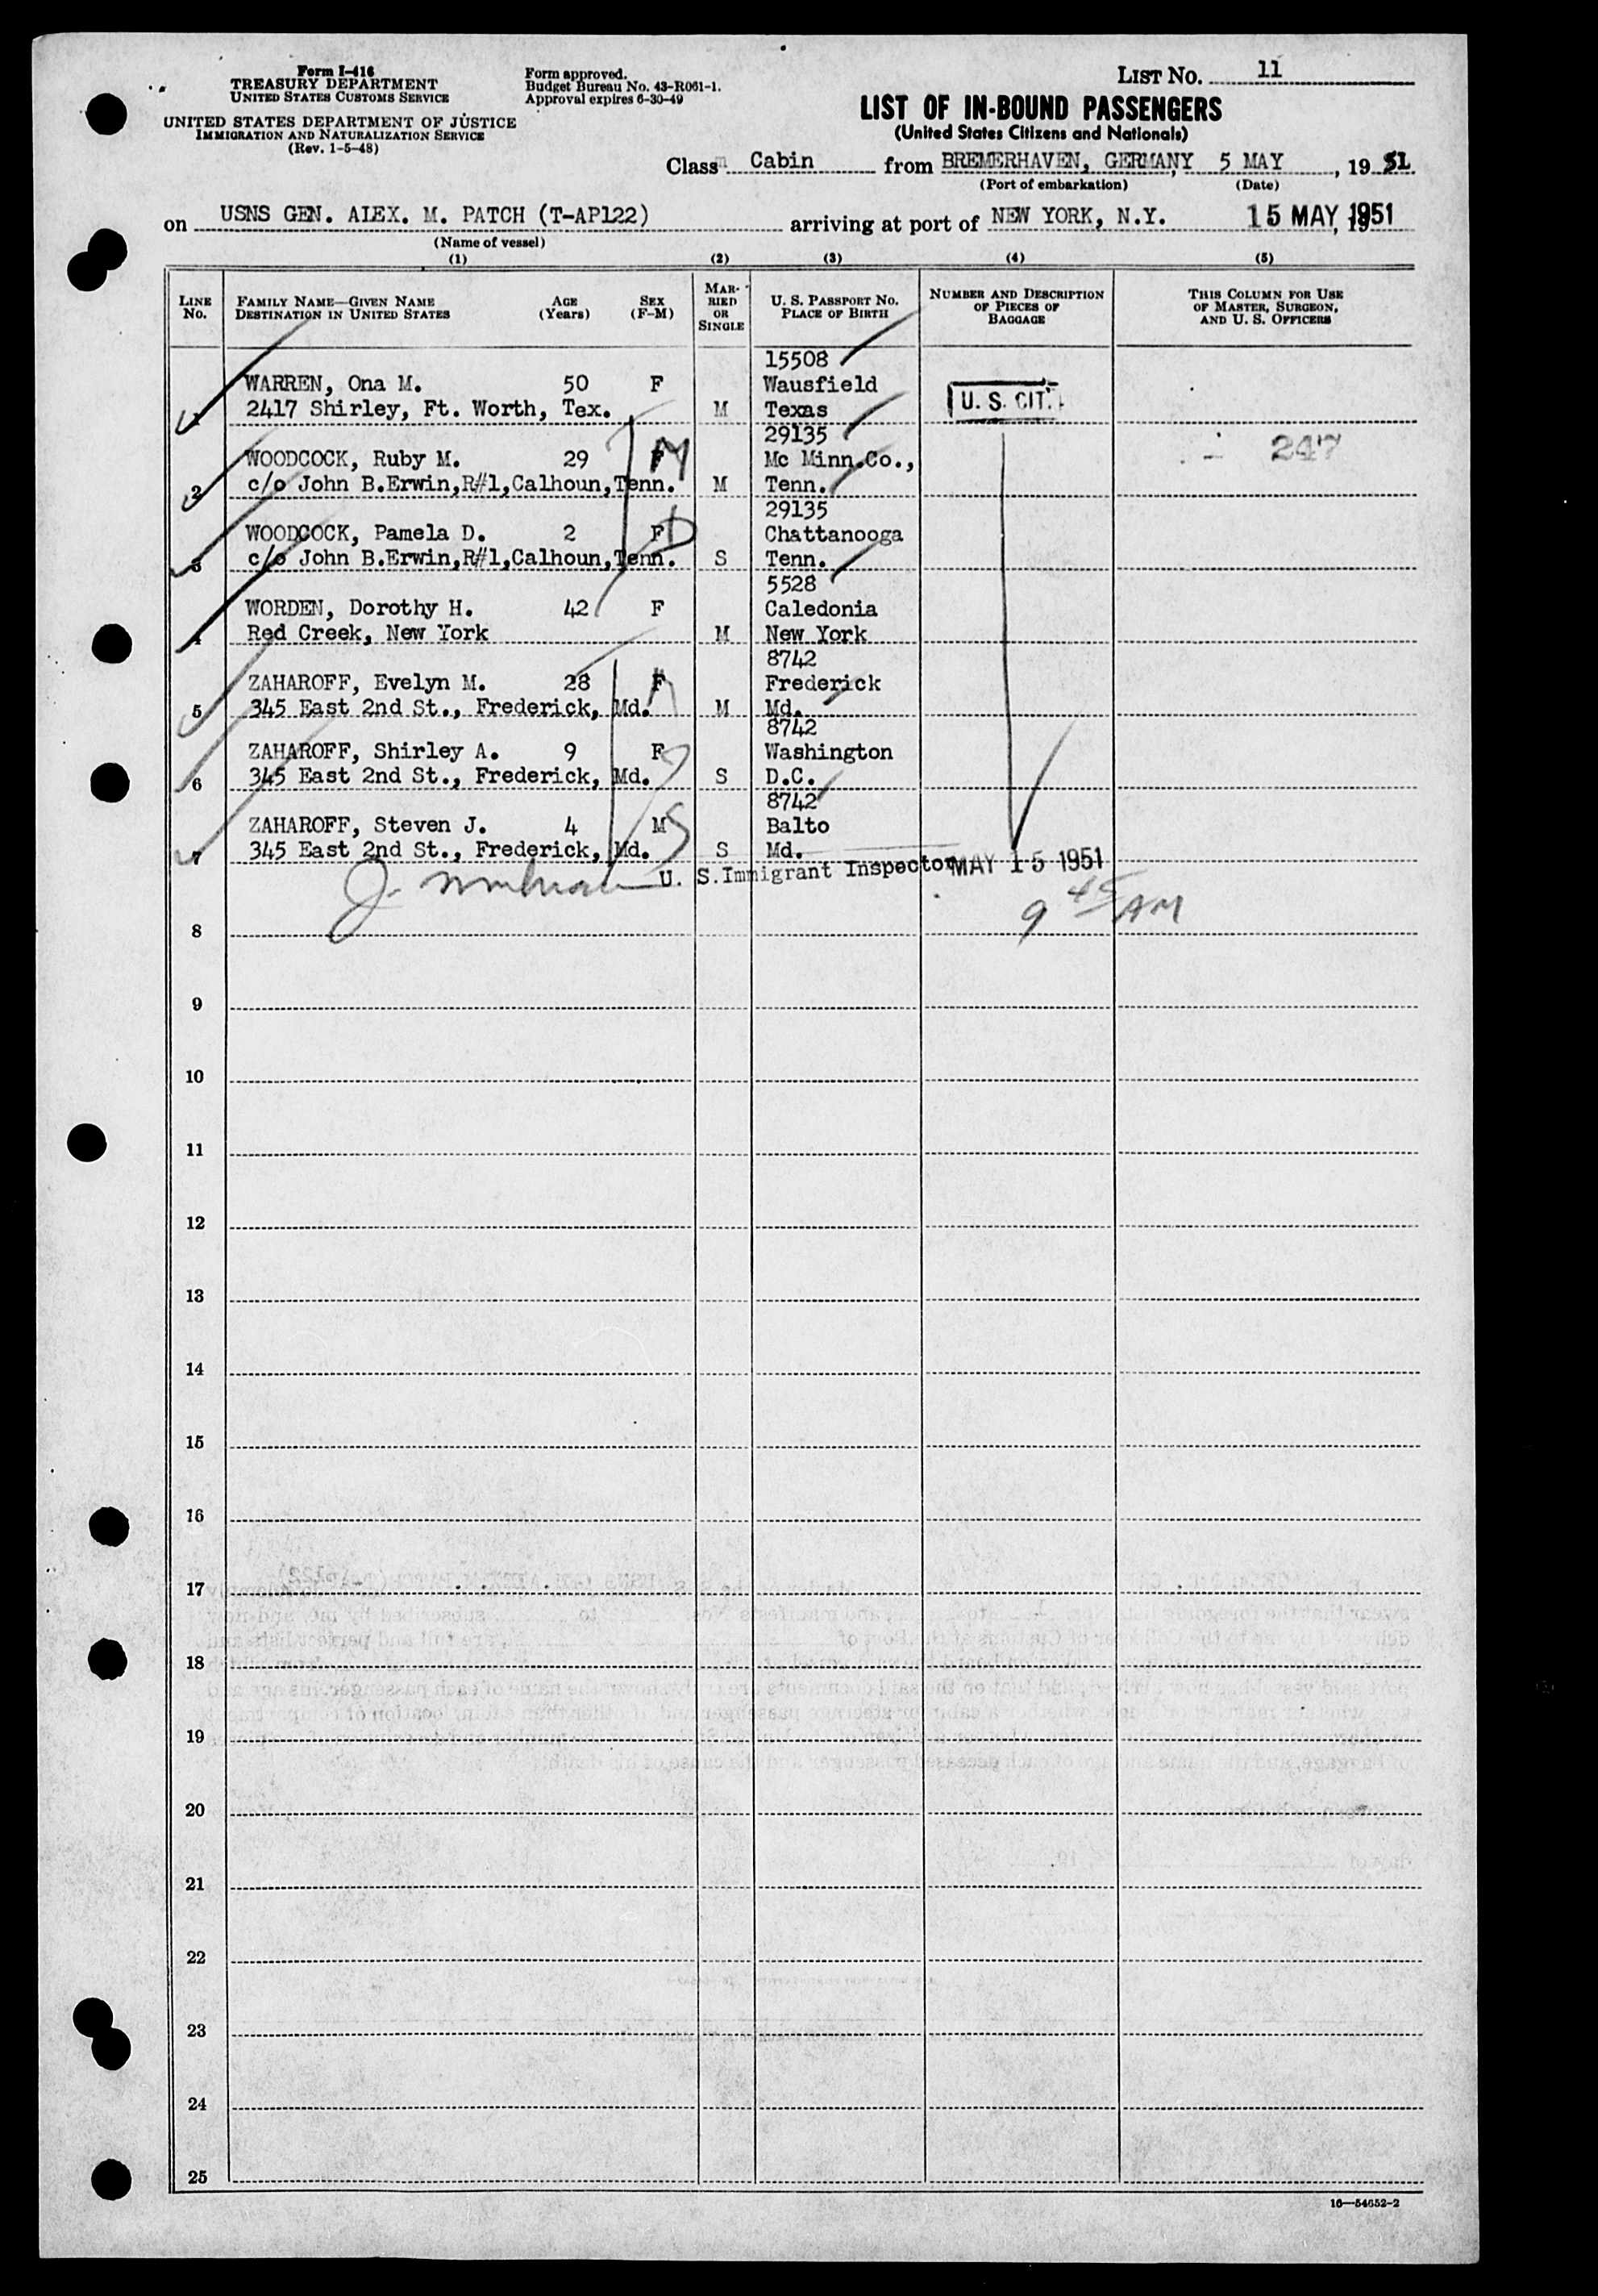 Form I-416
TREASURY DEPARTMENT
UNITED STATES CUSTOMS SERVICE
UNITED STATES DEPARTMENT OF JUSTICE
IMMIGRATION AND NATURALIZATION SERVICE
(Rev. 1-5-48)
Form approved.
Budget Bureau No. 43-R061-1.
Approval expires 6-30-49
LIST NO. 11
LIST OF IN-BOUND PASSENGERS
(United States Citizens and Nationals)
Class Cabin from BREMERHAVEN, GERMANY, 5 MAY, 19 51
(Port of embarkation) (Date)
on USNS GEN. ALEX. M. PATCH (T-AP122) arriving at port of NEW YORK, N.Y. 15 MAY, 1951
(Name of vessel)
(1) (2) (3) (4) (5)
LINE NO. FAMILY NAME—GIVEN NAME DESTINATION IN UNITED STATES AGE (Years) SEX (F-M) MARRIED OR SINGLE U. S. PASSPORT NO. PLACE OF BIRTH NUMBER AND DESCRIPTION OF PIECES OF BAGGAGE THIS COLUMN FOR USE OF MASTER, SURGEON, AND U. S. OFFICERS
15508
WARREN, Ona M. 50 F Wausfield
1 2417 Shirley, Ft. Worth, Tex. M Texas U. S. CIT.
29135
WOODCOCK, Ruby M. 29 F M Mc Minn.Co., 247
2 c/o John B.Erwin,R#1,Calhoun,Tenn. M Tenn.
29135
WOODCOCK, Pamela D. 2 F D Chattanooga
3 c/o John B.Erwin,R#1,Calhoun,Tenn. S Tenn.
5528
WORDEN, Dorothy H. 42 F Caledonia
4 Red Creek, New York M New York
8742
ZAHAROFF, Evelyn M. 28 F M Frederick
5 345 East 2nd St., Frederick, Md. M Md.
8742
ZAHAROFF, Shirley A. 9 F Washington
6 345 East 2nd St., Frederick, Md. S D.C.
8742
ZAHAROFF, Steven J. 4 M S Balto
7 345 East 2nd St., Frederick, Md. S Md.
U. S. Immigrant Inspector MAY 15 1951
9 45 AM
8
9
10
11
12
13
14
15
16
17
18
19
20
21
22
23
24
25
16—54652-2